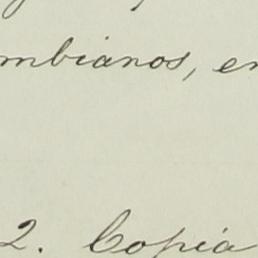 mbianos, en
2. Copia